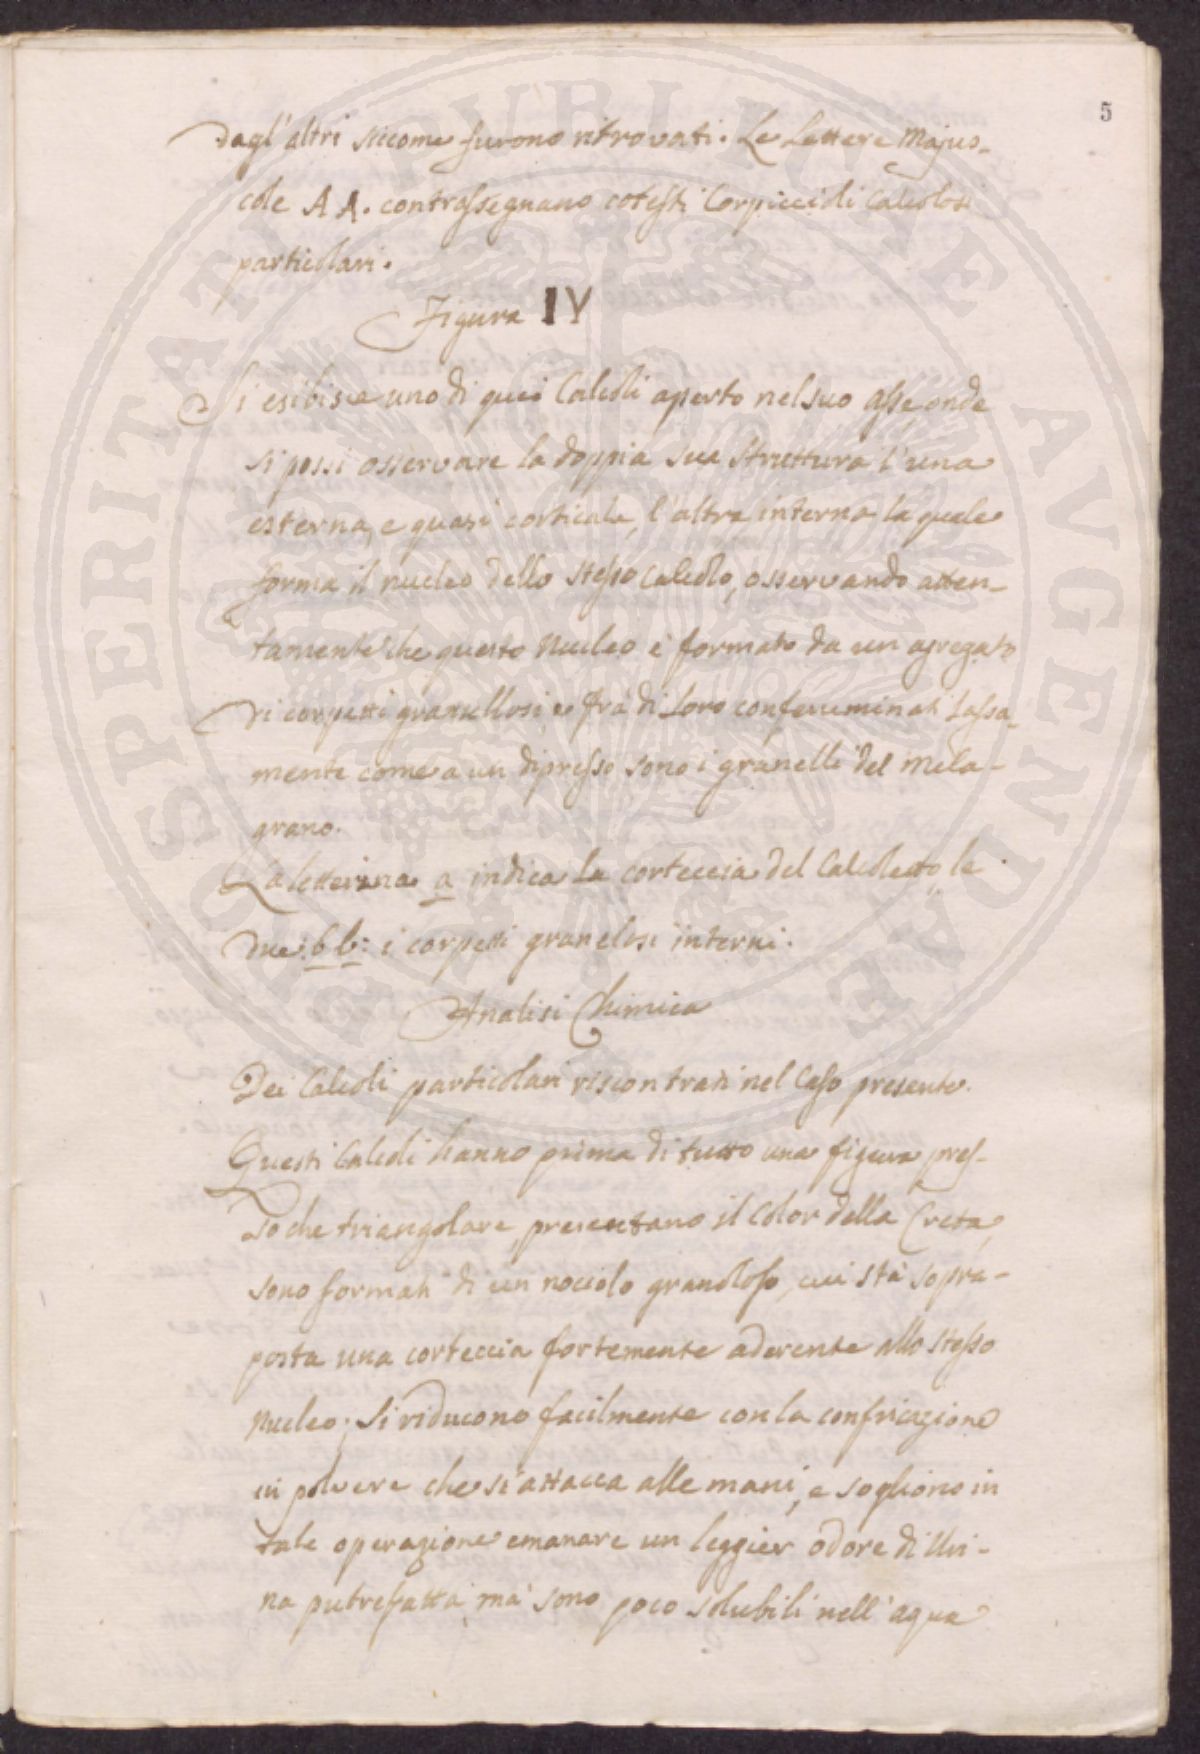 5
dagl'altri siccome furono ritrovati. Le Lettere Majus-
cole A A. contrassegnano cotesti Corpiccioli Calcolosi
particolari.
Figura IV
Si esibisce uno di quei Calcoli aperto nel suo asse, onde
si possi osservare la doppia sua struttura l'una
esterna, e quasi corticale, l'altra interna la quale
forma il nucleo dello stesso Calcolo, osservando atten-
tamente che questo Nucleo è formato da un agregato
di corpetti granellosi, e frà di Loro conferuminati Lassa-
mente come a un dipresso sono i granelli del Mela-
grano.
La letterina a indica la corteccia del Calcoletto, le
due b b: i corpetti granelosi interni.
Analisi Chimica
Dei Calcoli particolari riscontrati nel Caso presente.
Questi Calcoli hanno prima di tutto una figura pres-
soche triangolare, presentano il Color della Creta,
sono formati di un nocciolo granoloso, cui stà sopra-
posta una corteccia fortemente aderente allo stesso
Nucleo; Si riducono facilmente con la confricazione
in polvere che si attacca alle mani, e sogliono in
tale operazione emanare un leggier odore di Uri-
na putrefatta, mà sono poco solubili nell'aqua
PUBLICAE
PROSPERITATI
AVGENDAE